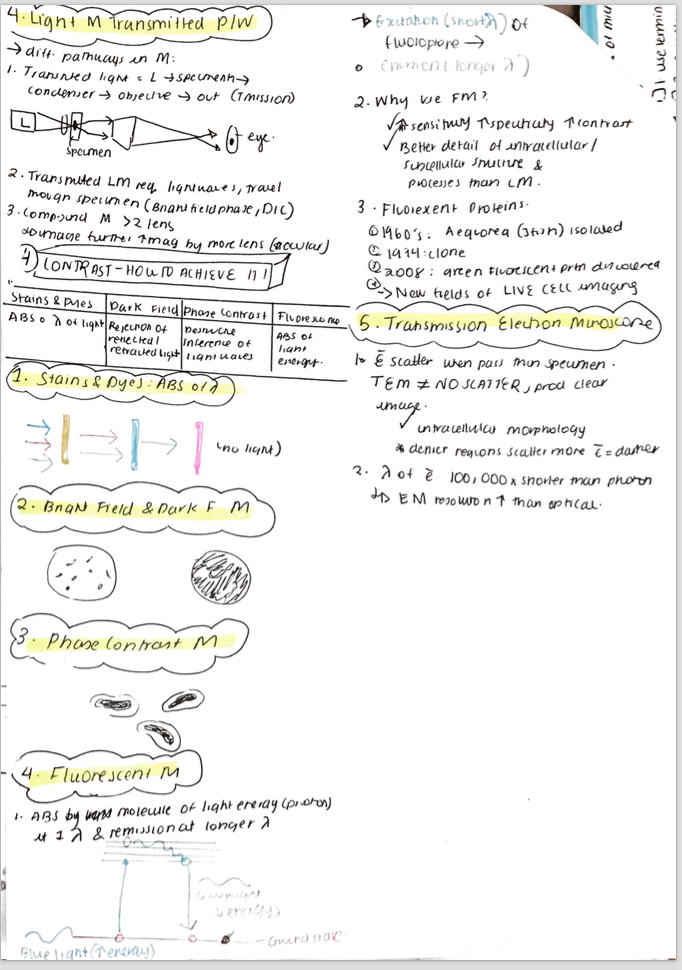 4. Light M Transmitted P/W
→ diff. pathways in M:
1. Transmitted light = L → specimen →
condenser → objective → out (Tmission)
L
eye.
specimen
2. Transmitted LM req. lightwaves, travel
through specimen (Brightfield phase, DIC)
3. Compound M > 2 lens
image further ↑ mag by more lens (ocular)
4) CONTRAST - HOW TO ACHIEVE IT!
Stains & Dyes | Dark Field | Phase Contrast | Fluorescence
ABS o λ of light | Rejection of reflected/ retracted light | Destructive inference of lightwaves | ABS of light energy.
1. Stains & Dyes: ABS of λ
(no light)
2. Bright Field & Dark F M
3. Phase Contrast M
4. Fluorescent M
1. ABS by molecule of light energy (photon)
at 1 λ & remission at longer λ
(↓ energy)
Ground state.
Blue light (↑ energy)
→ Excitation (short λ) of
fluorophore →
emission (longer λ)
2. Why use FM?
✓ ↑ sensitivity ↑ specificity ↑ contrast
✓ Better detail of intracellular/
subcellular structure &
processes than LM.
3. Fluorexent Proteins.
① 1960's: Aequorea isolated
② 1994: clone
③ 2008: green fluorescent prtn discovered
④ → New fields of LIVE CELL imaging
5. Transmission Electron Microscope
1. ē scatter when pass thin specimen.
TEM ≠ NO SCATTER, prod clear
image.
✓ intracellular morphology
* denser regions scatter more ē = darker
2. λ of ē 100,000 x shorter than photon
↳ EM resolution ↑ than optical.